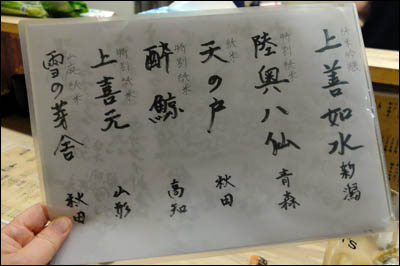 純米吟醸
上善如水 新潟
特別純米
陸奥八仙 青森
純米
天の戸 秋田
特別純米
酔鯨 高知
特別純米
上喜元 山形
雪の芽舎 秋田